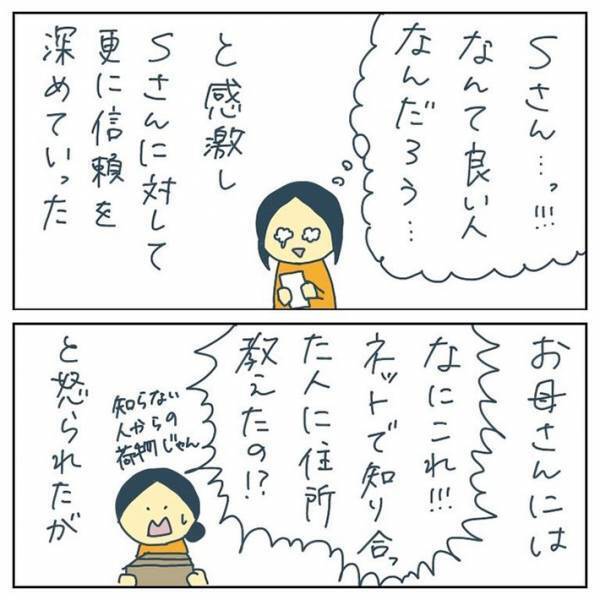 Sさん…っ!!!
なんて良い人
なんだろう…
と感激し
Sさんに対して
更に信頼を
深めていった
お母さんには
なにこれ!!!
ネットで知り合っ
た人に住所
教えたの!?
知らない
人からの
荷物じゃん
と怒られたが